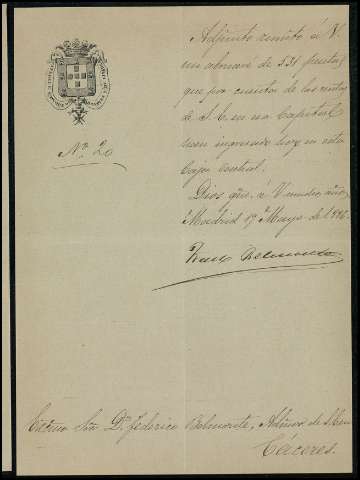 Nº 20
Adjunto remito á V.
un abonaré de 531 pesetas
que por cuenta de las rentas
de S. E. en esa Capital
han ingresado hoy en esta
Caja Central.
Dios gue. á V. muchos años
Madrid 17 Mayo de 1886.
Belmonte
Excmo Sor Dn. Federico Belmonte, Admor de S. E. en
Cáceres.